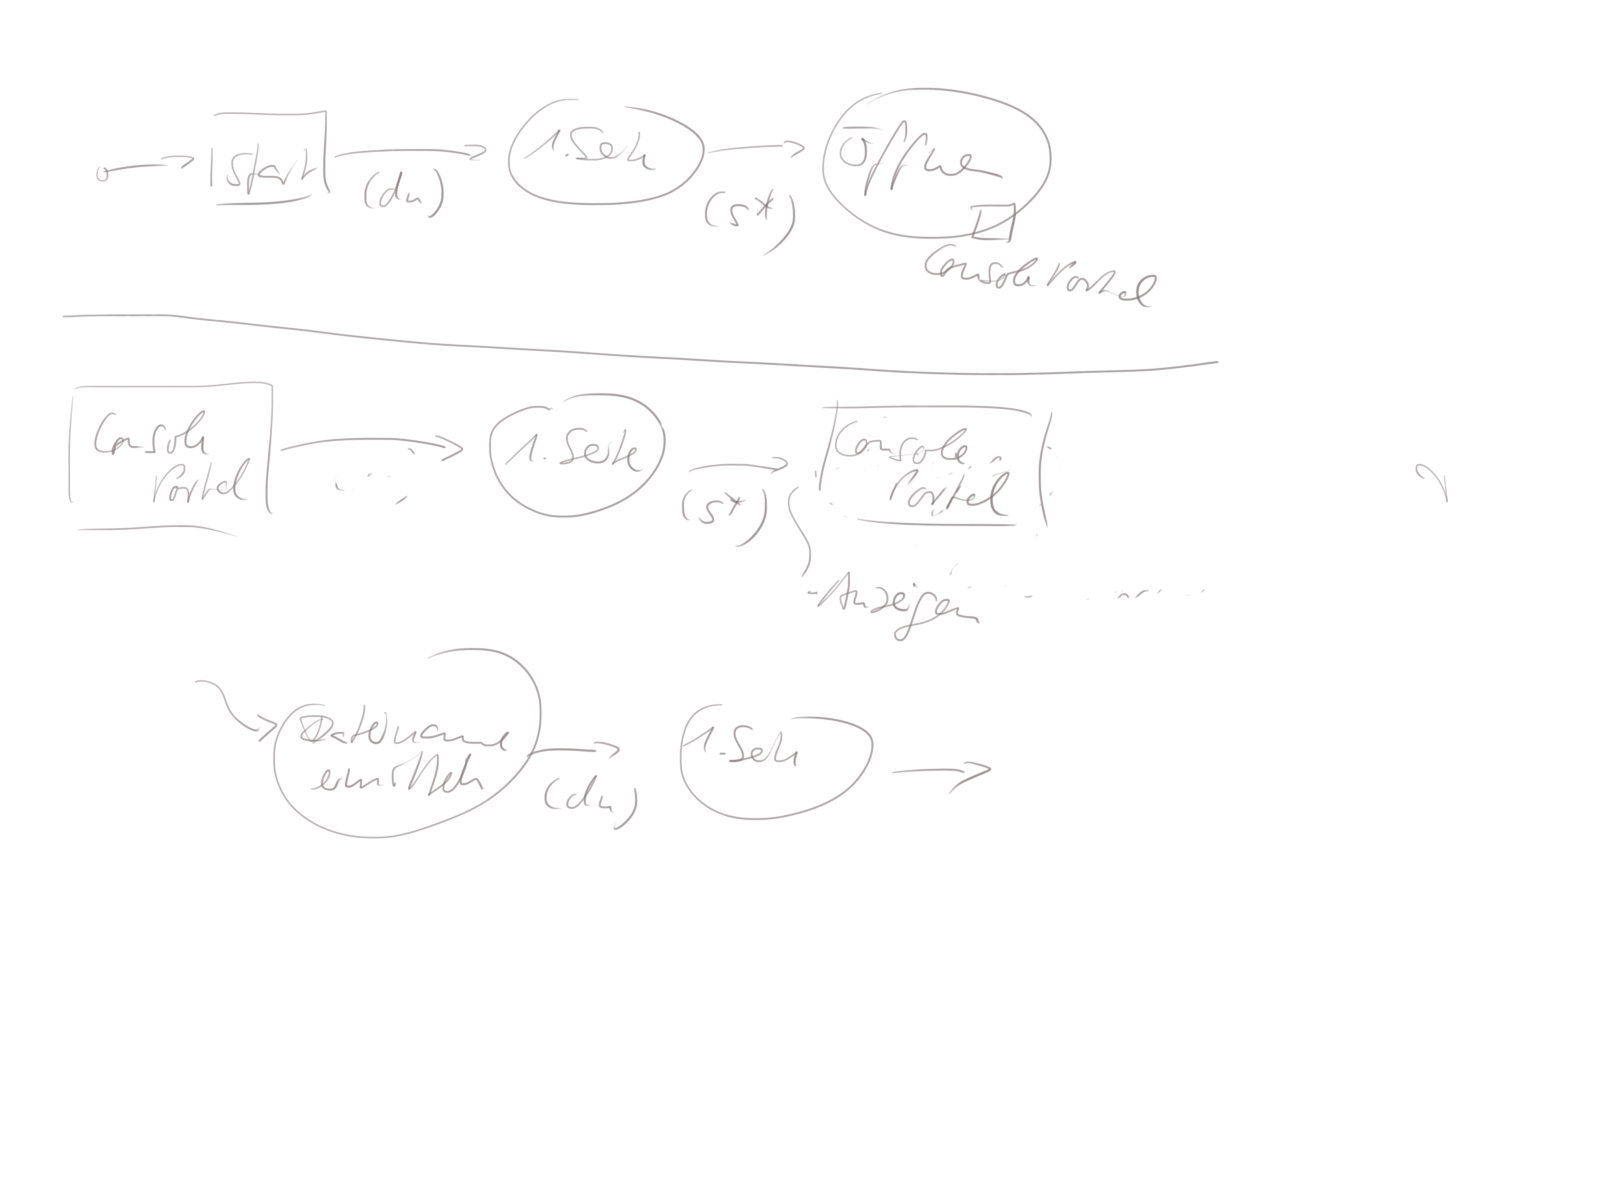 Start
(dn)
1. Seite
(s*)
Öffnen
Console Portal
Console
Portal
1. Seite
(s*)
Console
Portal
- Anzeigen
Dateiname
ermitteln
(dn)
1. Seite